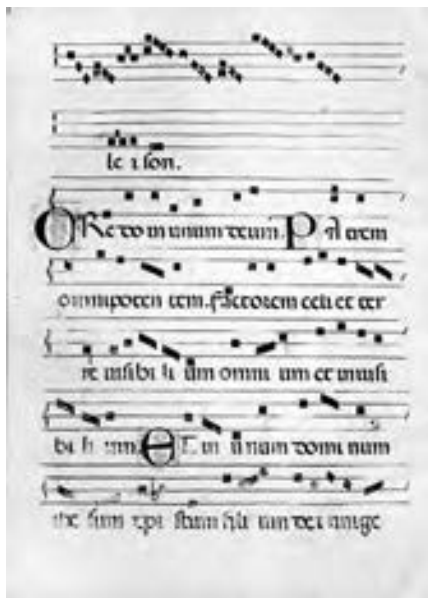 le i son.
CRe do in unum deum. PA trem
omnipoten tem. factorem celi et ter
re uisibi li um omni um et inuisi
bi li um. ET in unum domi num
ihe sum xpi stum fili um de i unige